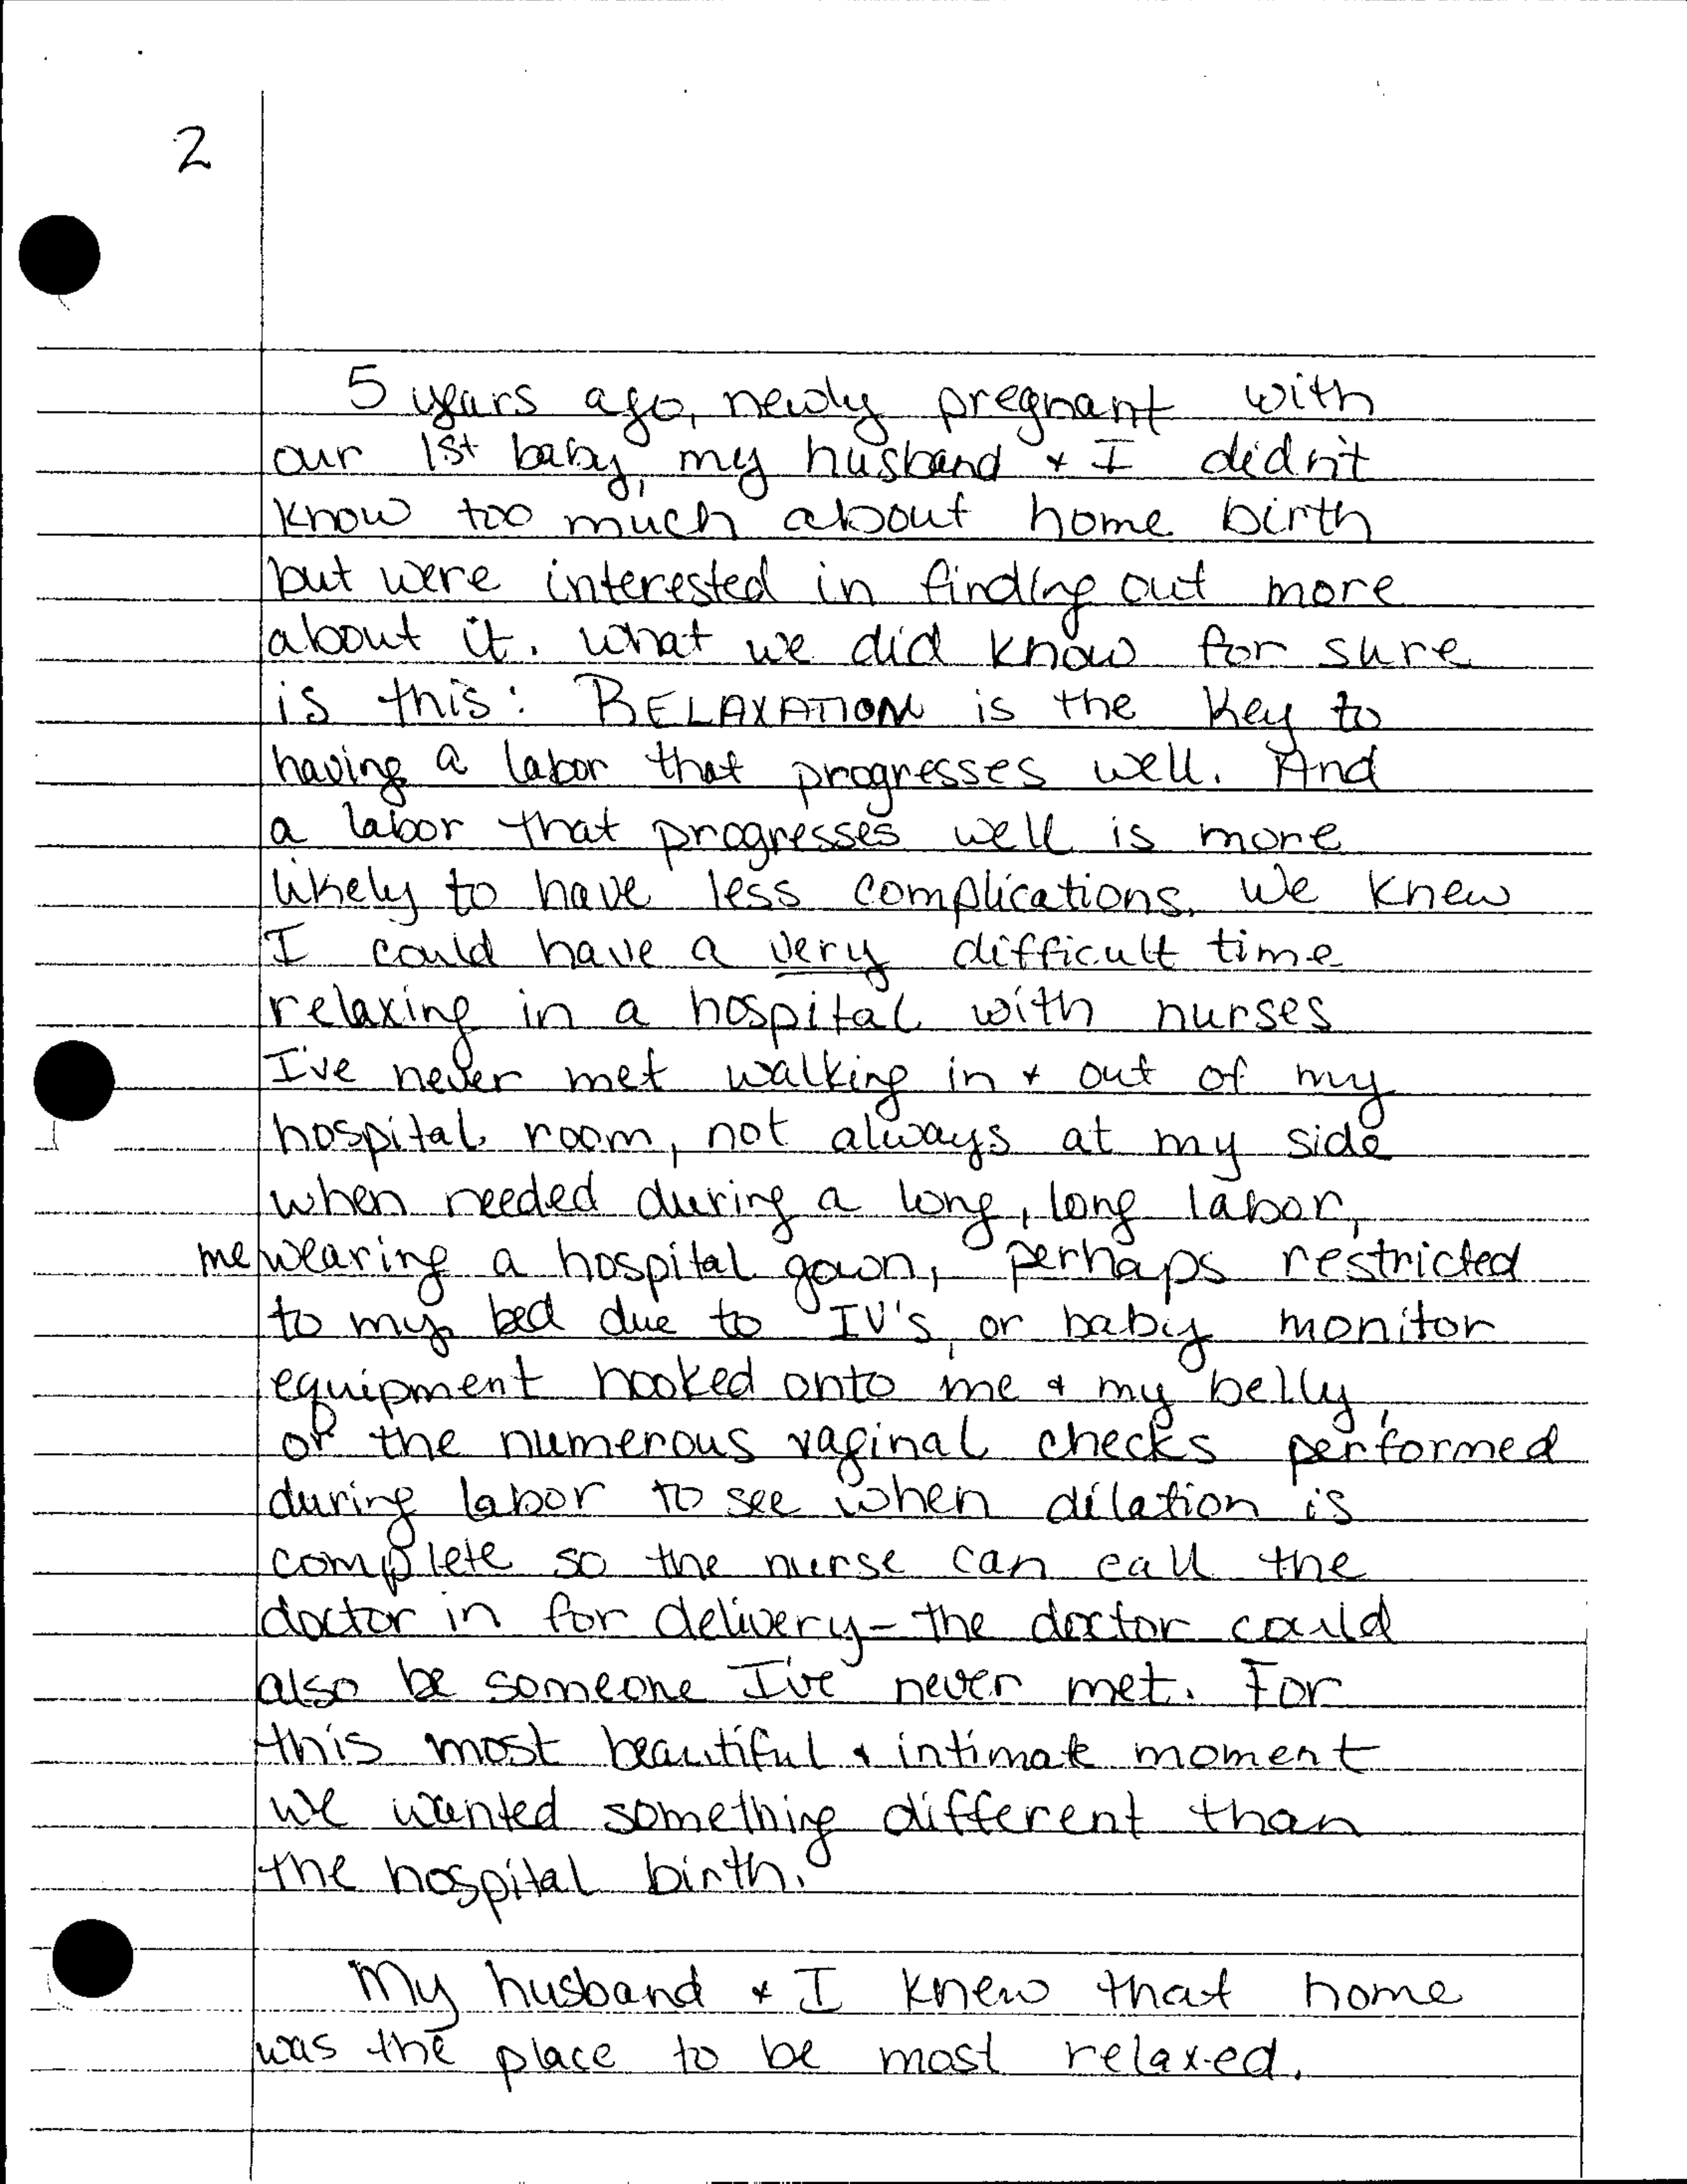 2
5 years ago, newly pregnant with
our 1st baby, my husband & I didn't
know too much about home birth
but were interested in finding out more
about it. What we did know for sure
is this: RELAXATION is the key to
having a labor that progresses well. And
a labor that progresses well is more
likely to have less complications. We knew
I could have a very difficult time
relaxing in a hospital with nurses
I've never met walking in & out of my
hospital room, not always at my side
when needed during a long, long labor,
me wearing a hospital gown, perhaps restricted
to my bed due to IV's, or baby monitor
equipment hooked onto me & my belly,
or the numerous vaginal checks performed
during labor to see when dilation is
complete so the nurse can call the
doctor in for delivery - the doctor could
also be someone I've never met. For
this most beautiful & intimate moment
we wanted something different than
the hospital birth.
My husband & I knew that home
was the place to be most relaxed.